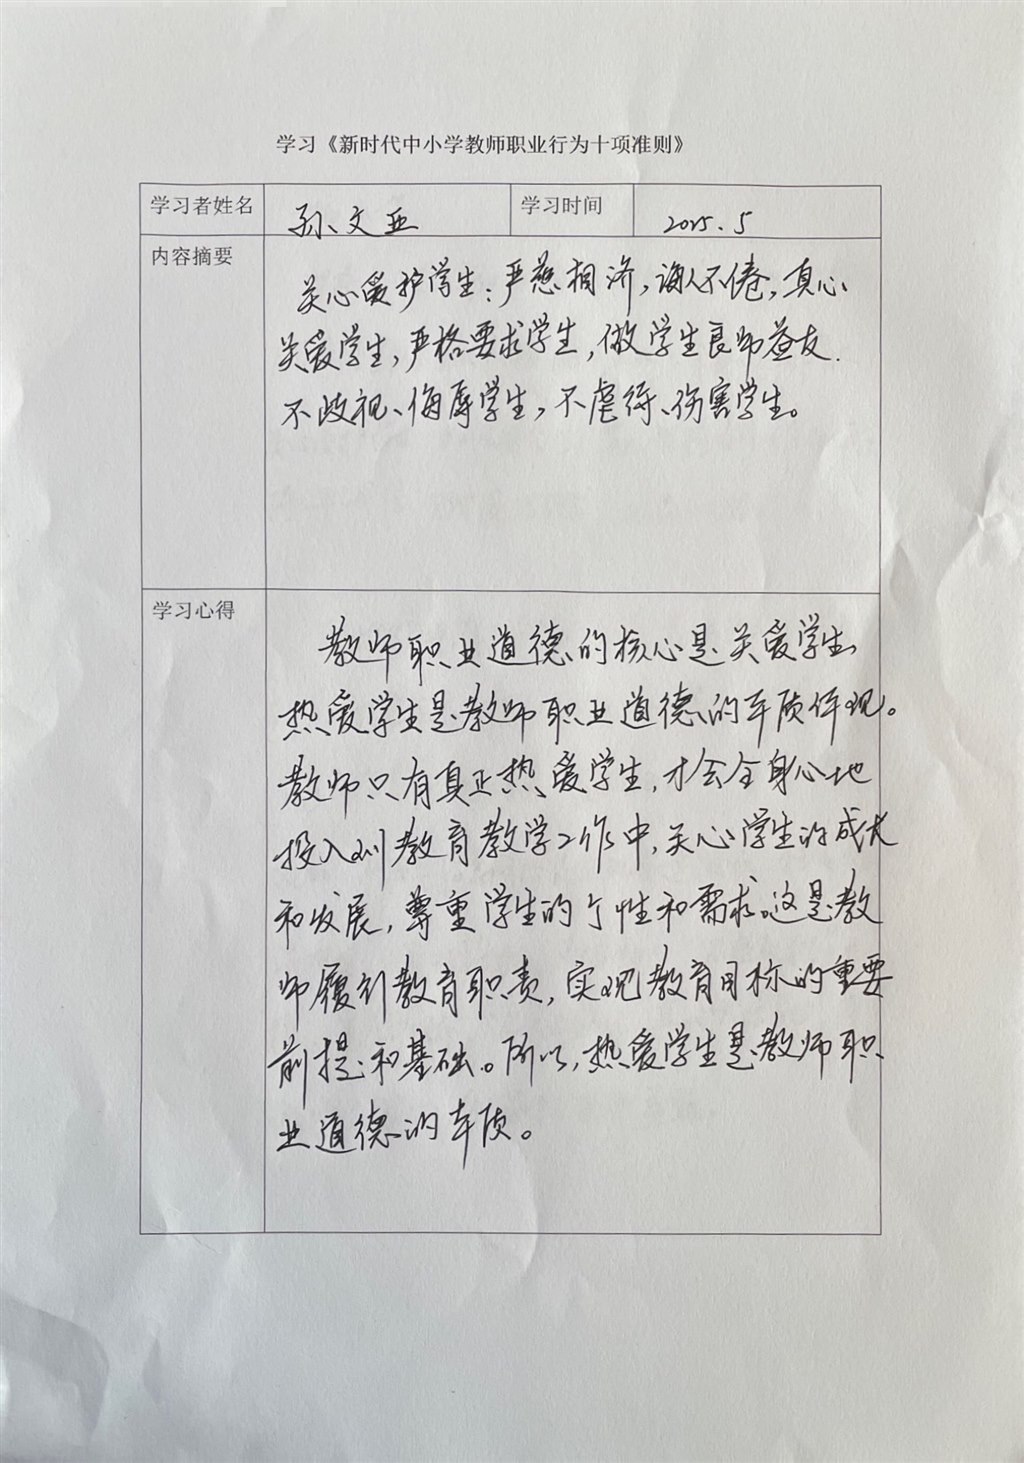 学习《新时代中小学教师职业行为十项准则》
学习者姓名 孙文亚 学习时间 2025.5
内容摘要
关心爱护学生：严慈相济，诲人不倦，真心
关爱学生，严格要求学生，做学生良师益友.
不歧视、侮辱学生，不虐待、伤害学生。
学习心得
教师职业道德的核心是关爱学生，
热爱学生是教师职业道德的本质体现。
教师只有真正热爱学生，才会全身心地
投入到教育教学工作中，关心学生的成长
和发展，尊重学生的个性和需求。这是教
师履行教育职责，实现教育目标的重要
前提和基础。所以，热爱学生是教师职
业道德的本质。